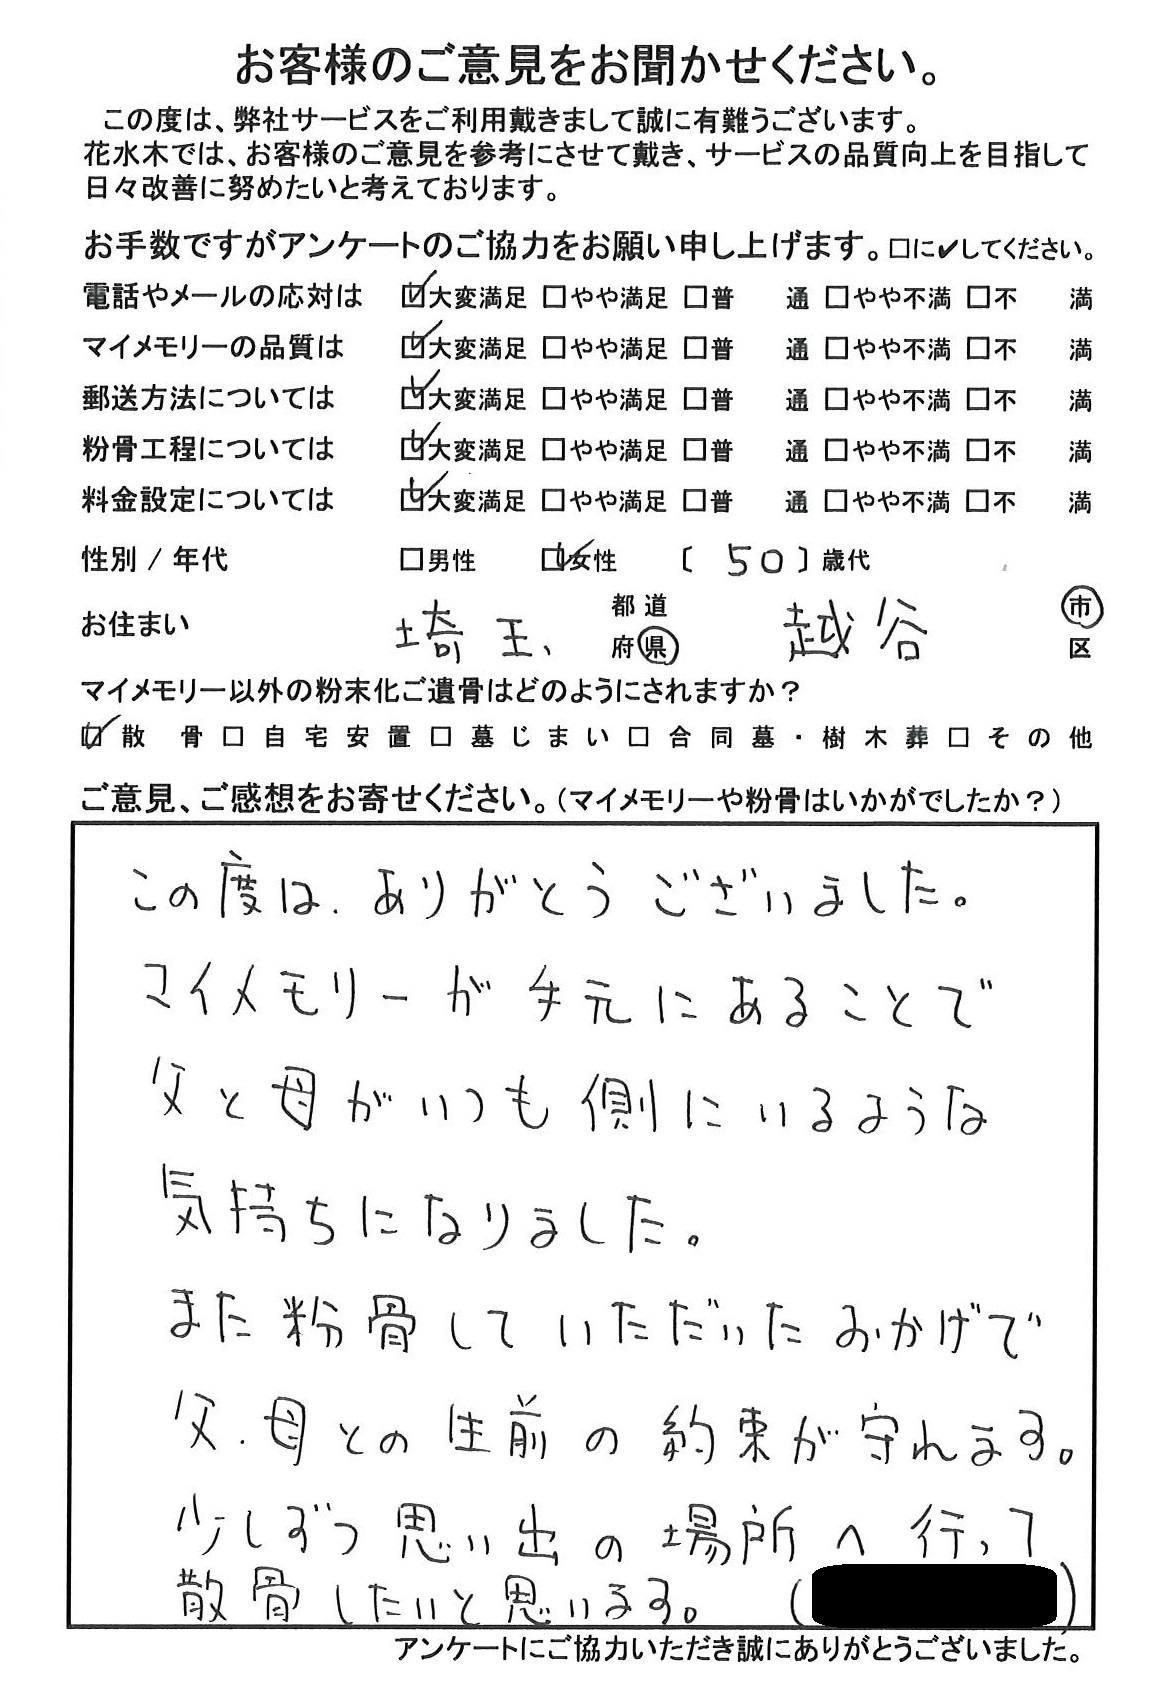 お客様のご意見をお聞かせください。
この度は、弊社サービスをご利用戴きまして誠に有難うございます。
花水木では、お客様のご意見を参考にさせて戴き、サービスの品質向上を目指して
日々改善に努めたいと考えております。
お手数ですがアンケートのご協力をお願い申し上げます。□に✔してください。
電話やメールの応対は ☑大変満足 □やや満足 □普 通 □やや不満 □不 満
マイメモリーの品質は ☑大変満足 □やや満足 □普 通 □やや不満 □不 満
郵送方法については ☑大変満足 □やや満足 □普 通 □やや不満 □不 満
粉骨工程については ☑大変満足 □やや満足 □普 通 □やや不満 □不 満
料金設定については ☑大変満足 □やや満足 □普 通 □やや不満 □不 満
性別 / 年代 □男性 ☑女性 〔 50 〕歳代
お住まい 埼玉、 都道府県 越谷 市区
マイメモリー以外の粉末化ご遺骨はどのようにされますか？
☑散 骨 □自宅安置 □墓じまい □合同墓・樹木葬 □その他
ご意見、ご感想をお寄せください。（マイメモリーや粉骨はいかがでしたか？）
この度は、ありがとうございました。
マイメモリーが手元にあることで
父と母がいつも側にいるような
気持ちになりました。
また粉骨していただいたおかげで
父、母との生前の約束が守れます。
少しずつ思い出の場所へ行って
散骨したいと思います。（ ）
アンケートにご協力いただき誠にありがとうございました。